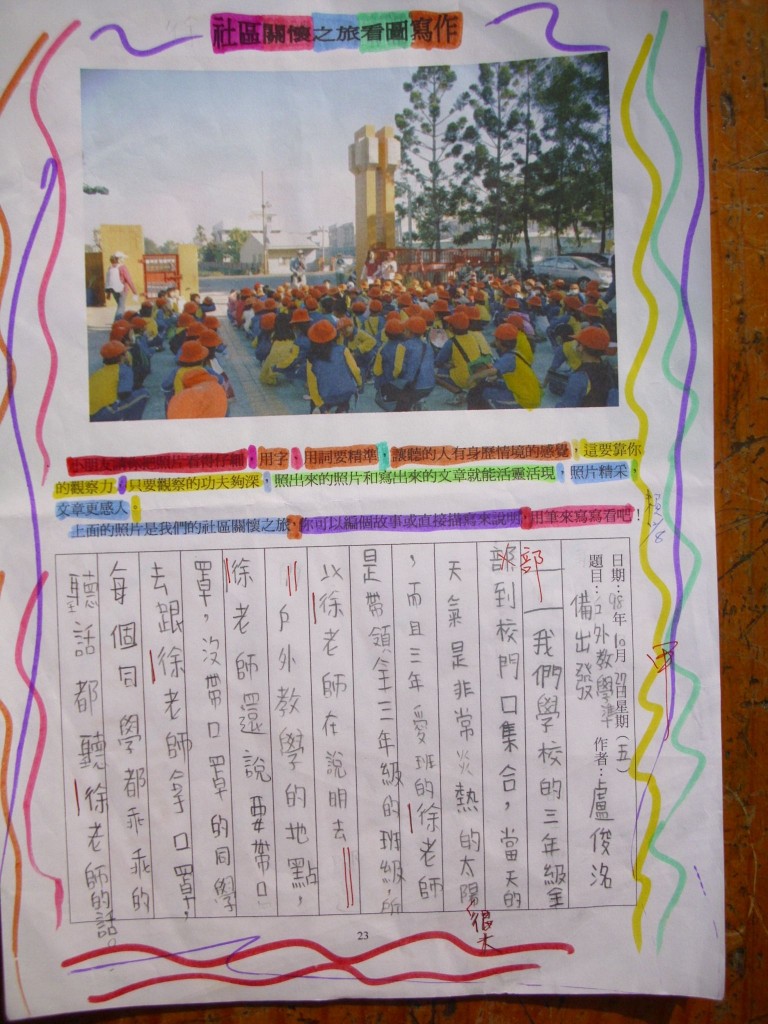 社區關懷之旅看圖寫作
小朋友請你把照片看得仔細，用字，用詞要精準，讓聽的人有身歷情境的感覺，這要靠你
的觀察力。只要觀察的功夫夠深，照出來的照片和寫出來的文章就能活靈活現，照片精采，
文章更感人。
上面的照片是我們的社區關懷之旅，你可以編個故事或直接描寫來說明，用筆來寫寫看吧！
日期：98年10月 日星期（五）
題目：戶外教學準 作者：盧俊洺
備出發
我們學校的三年級全
部到校門口集合，當天的
天氣是非常炎熱的太陽
很大
，而且三年愛班的徐老師
是帶領全三年級的班級，所
以徐老師在說明去
戶外教學的地點，
徐老師還說要帶口
罩，沒帶口罩的同學
去跟徐老師拿口罩，
每個同學都乖乖的
聽話都聽徐老師的話。
甲
23